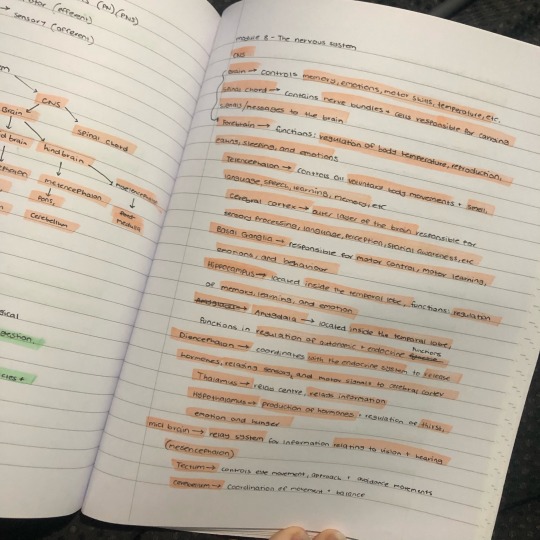 (efferent) (PN) (PNS)
→ sensory (afferent)
CNS
Brain
spinal chord
hindbrain
Pons,
Cerebellum
module 8 - The nervous system
CNS
Brain → controls memory, emotions, motor skills, temperature, etc.
Spinal chord → contains nerve bundles + cells responsible for carrying
signals/messages to the brain
Forebrain → functions: regulation of body temperature, reproduction,
eating, sleeping, and emotions
Telencephalon → controls all voluntary body movements +
language, speech, learning, memory, etc
Cerebral cortex → outer layer of the brain responsible for
sensory processing, language, perception, spatial awareness, etc
Basal Ganglia → responsible for motor control, motor learning,
emotions, and behaviour
Hippocampus → located inside the temporal lobe, functions: regulation
of memory, learning, and emotion
Amygdala → located inside the temporal lobe
functions in regulation of autonomic + endocrine functions
Diencephalon → coordinates with the endocrine system to release
hormones, relaying sensory, and motor signals to cerebral cortex
Thalamus → relay centre, relays information
Hypothalamus → production of hormones, regulation of thirst,
emotion and hunger
mid brain → relay system for information relating to vision + hearing
(mesencephalon)
Tectum → controls eye movement, approach + avoidance movements
Cerebellum → coordination of movement + balance